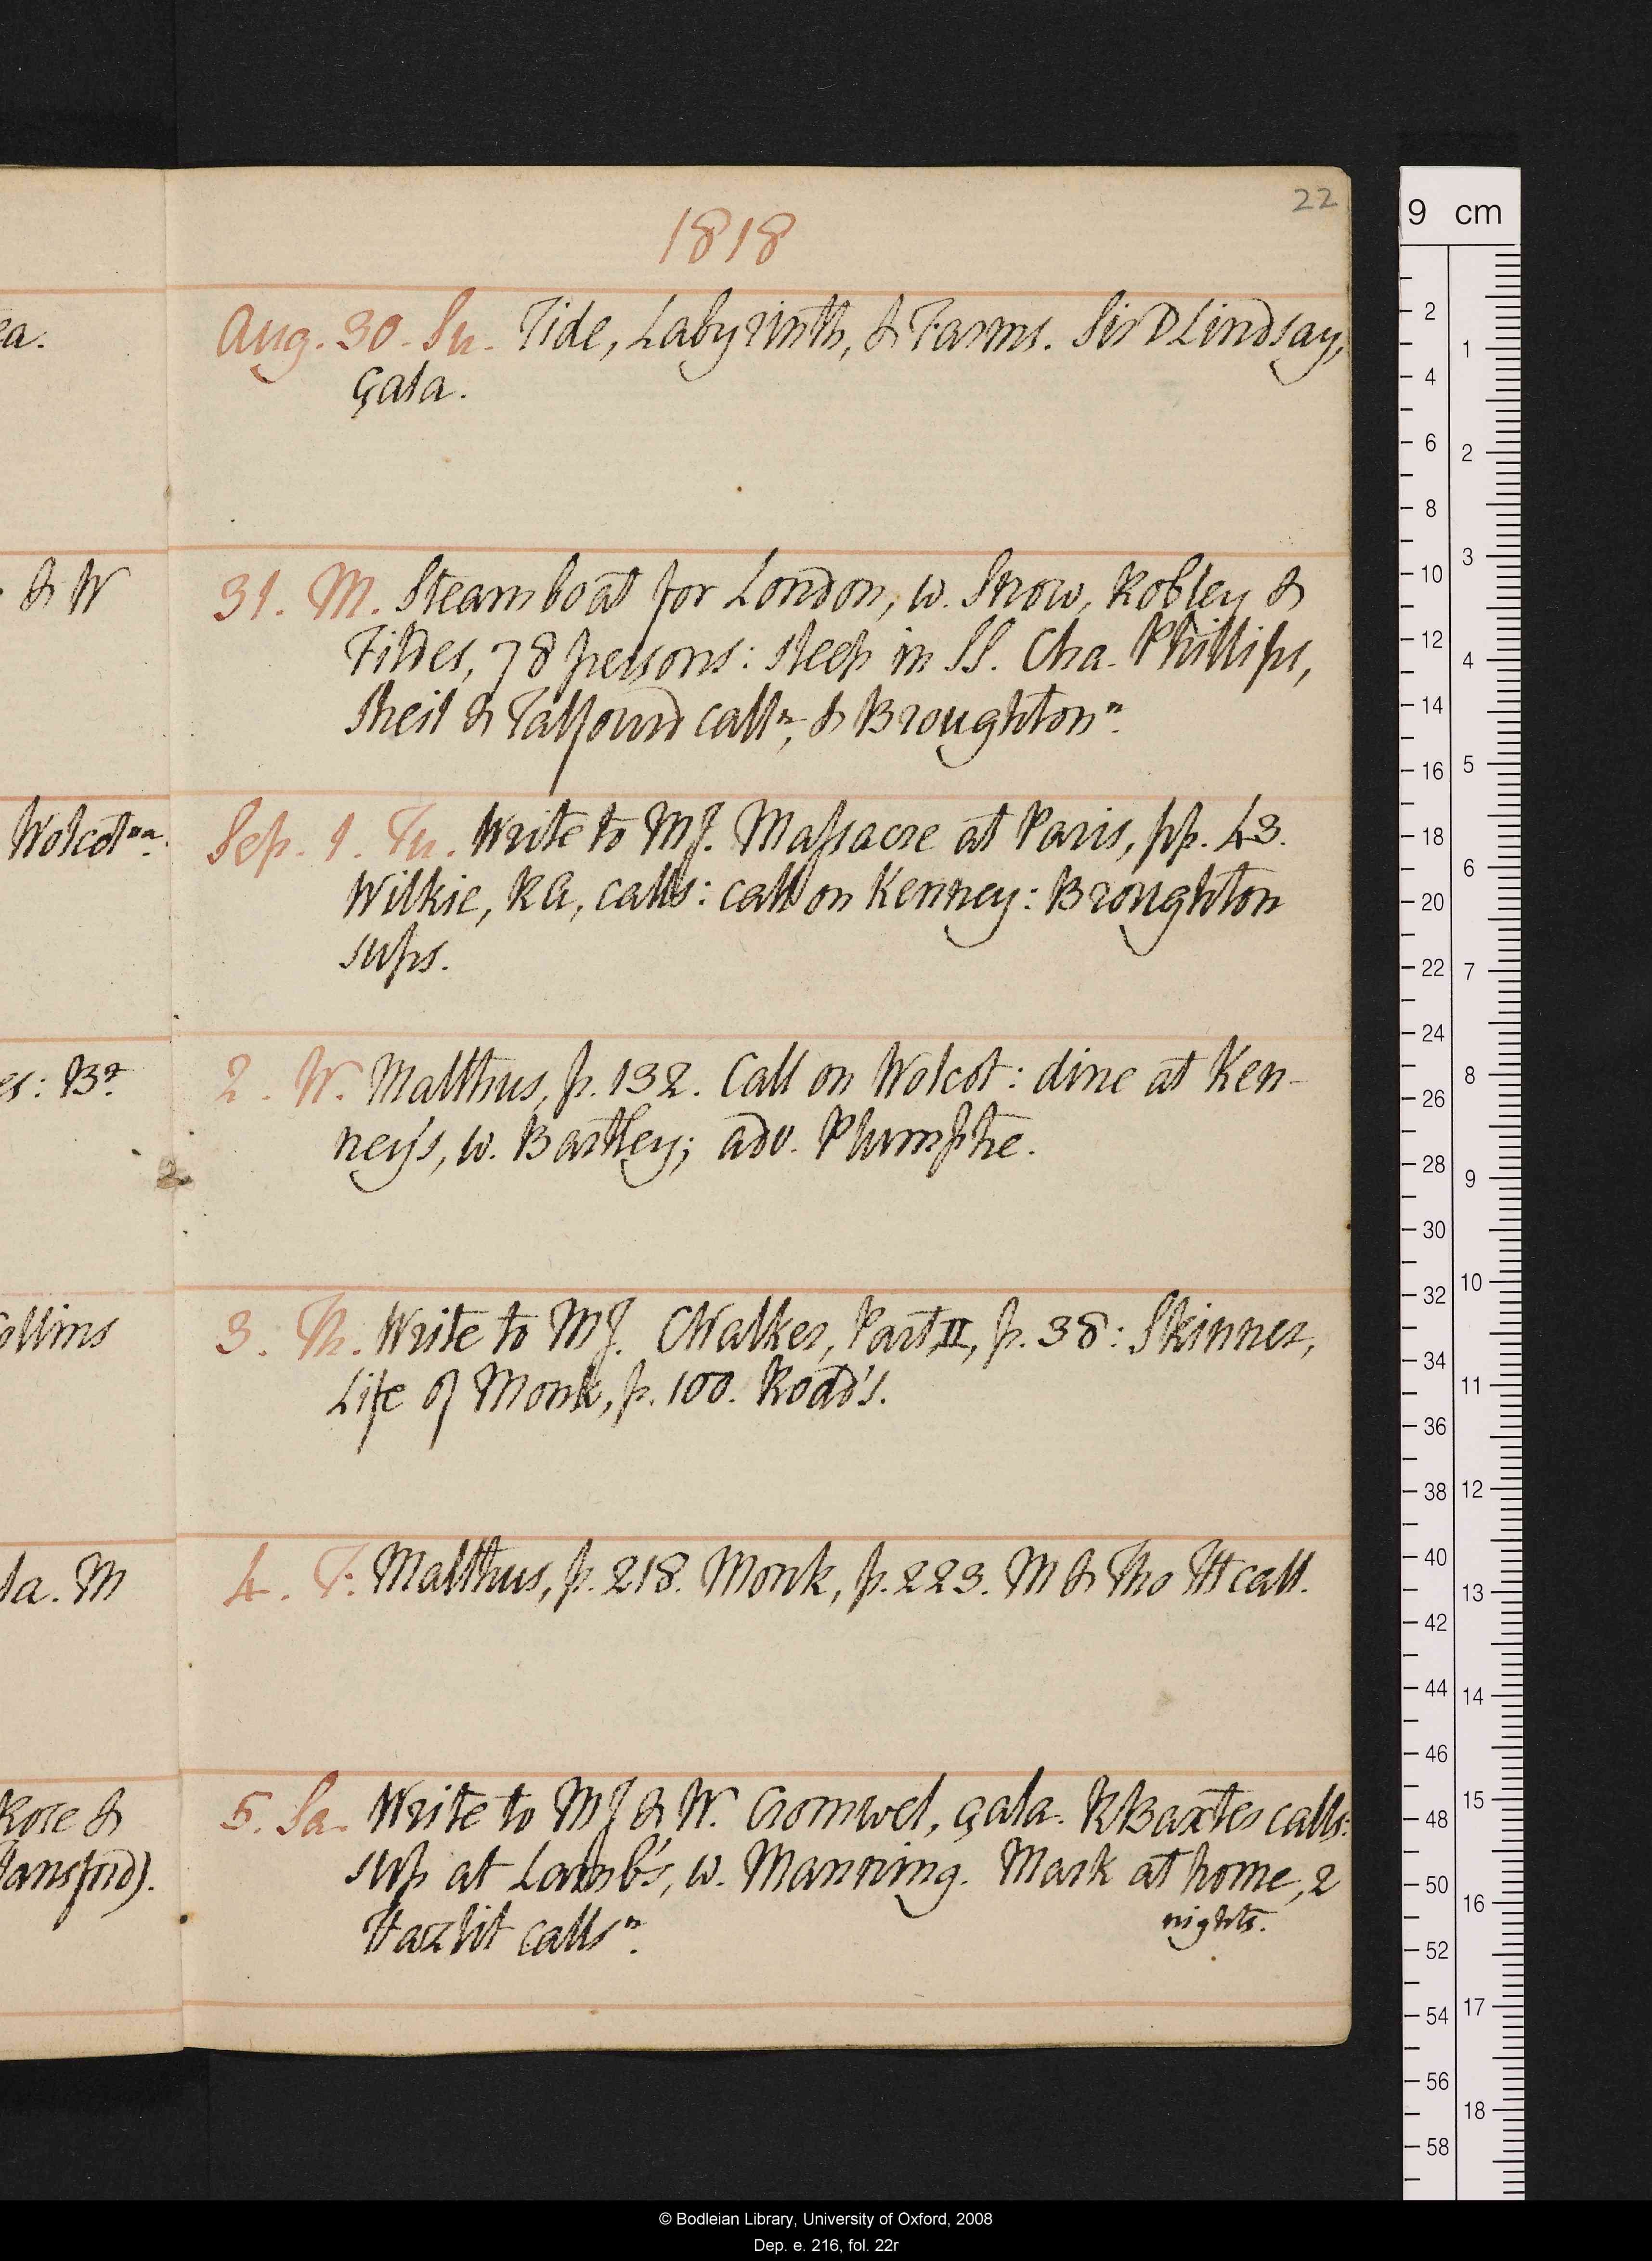 22
1818
Aug. 30. Su. Tide, Labyrinth, & Farms. Sir D Lindsay,
çala.
31. M. Steam boat for London, w. Snow, Robley &
Fildes, 78 persons: sleep in SS. Cha. Phillips,
Sheil & Talfourd callⁿ, & Broughtonⁿ.
Sep. 1. Tu. Write to MJ. Massacre at Paris, pp. 43.
Wilkie, RA, calls: call on Kenney: Broughton
sups.
2. W. Malthus, p. 132. Call on Wolcot: dine at Ken-
ney's, w. Bartley; adv. Plumptre.
3. Th. Write to MJ. CWalker, Part II, p. 38: Skinner,
Life of Monk, p. 100. Road's.
4. F. Malthus, p. 218. Monk, p. 223. M & Tho H call.
5. Sa. Write to MJ & W. Cromwel, çala. R Baxter calls:
sup at Lamb's, w. Manning. Mark at home, 2
nights.
Hazlit callsⁿ.
ea.
& W
Wolcotⁿᵃ.
es: Bᵗ
ollins
la. M
Rose &
Hansfrd).
9 cm
2
4
6
8
10
12
14
16
18
20
22
24
26
28
30
32
34
36
38
40
42
44
46
48
50
52
54
56
58
1
2
3
4
5
6
7
8
9
10
11
12
13
14
15
16
17
18
© Bodleian Library, University of Oxford, 2008
Dep. e. 216, fol. 22r